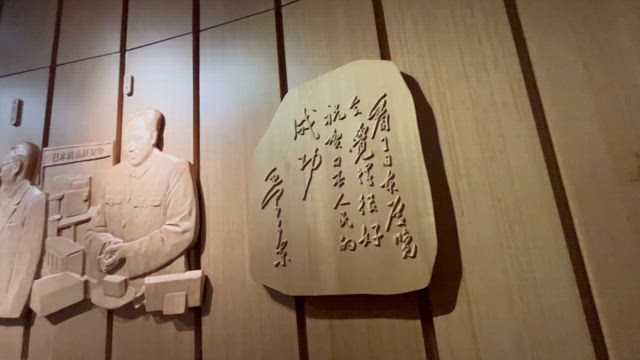 日本商品展览会
看了日本展览
会覺得很好
祝贺日本人民的
成功
毛泽东